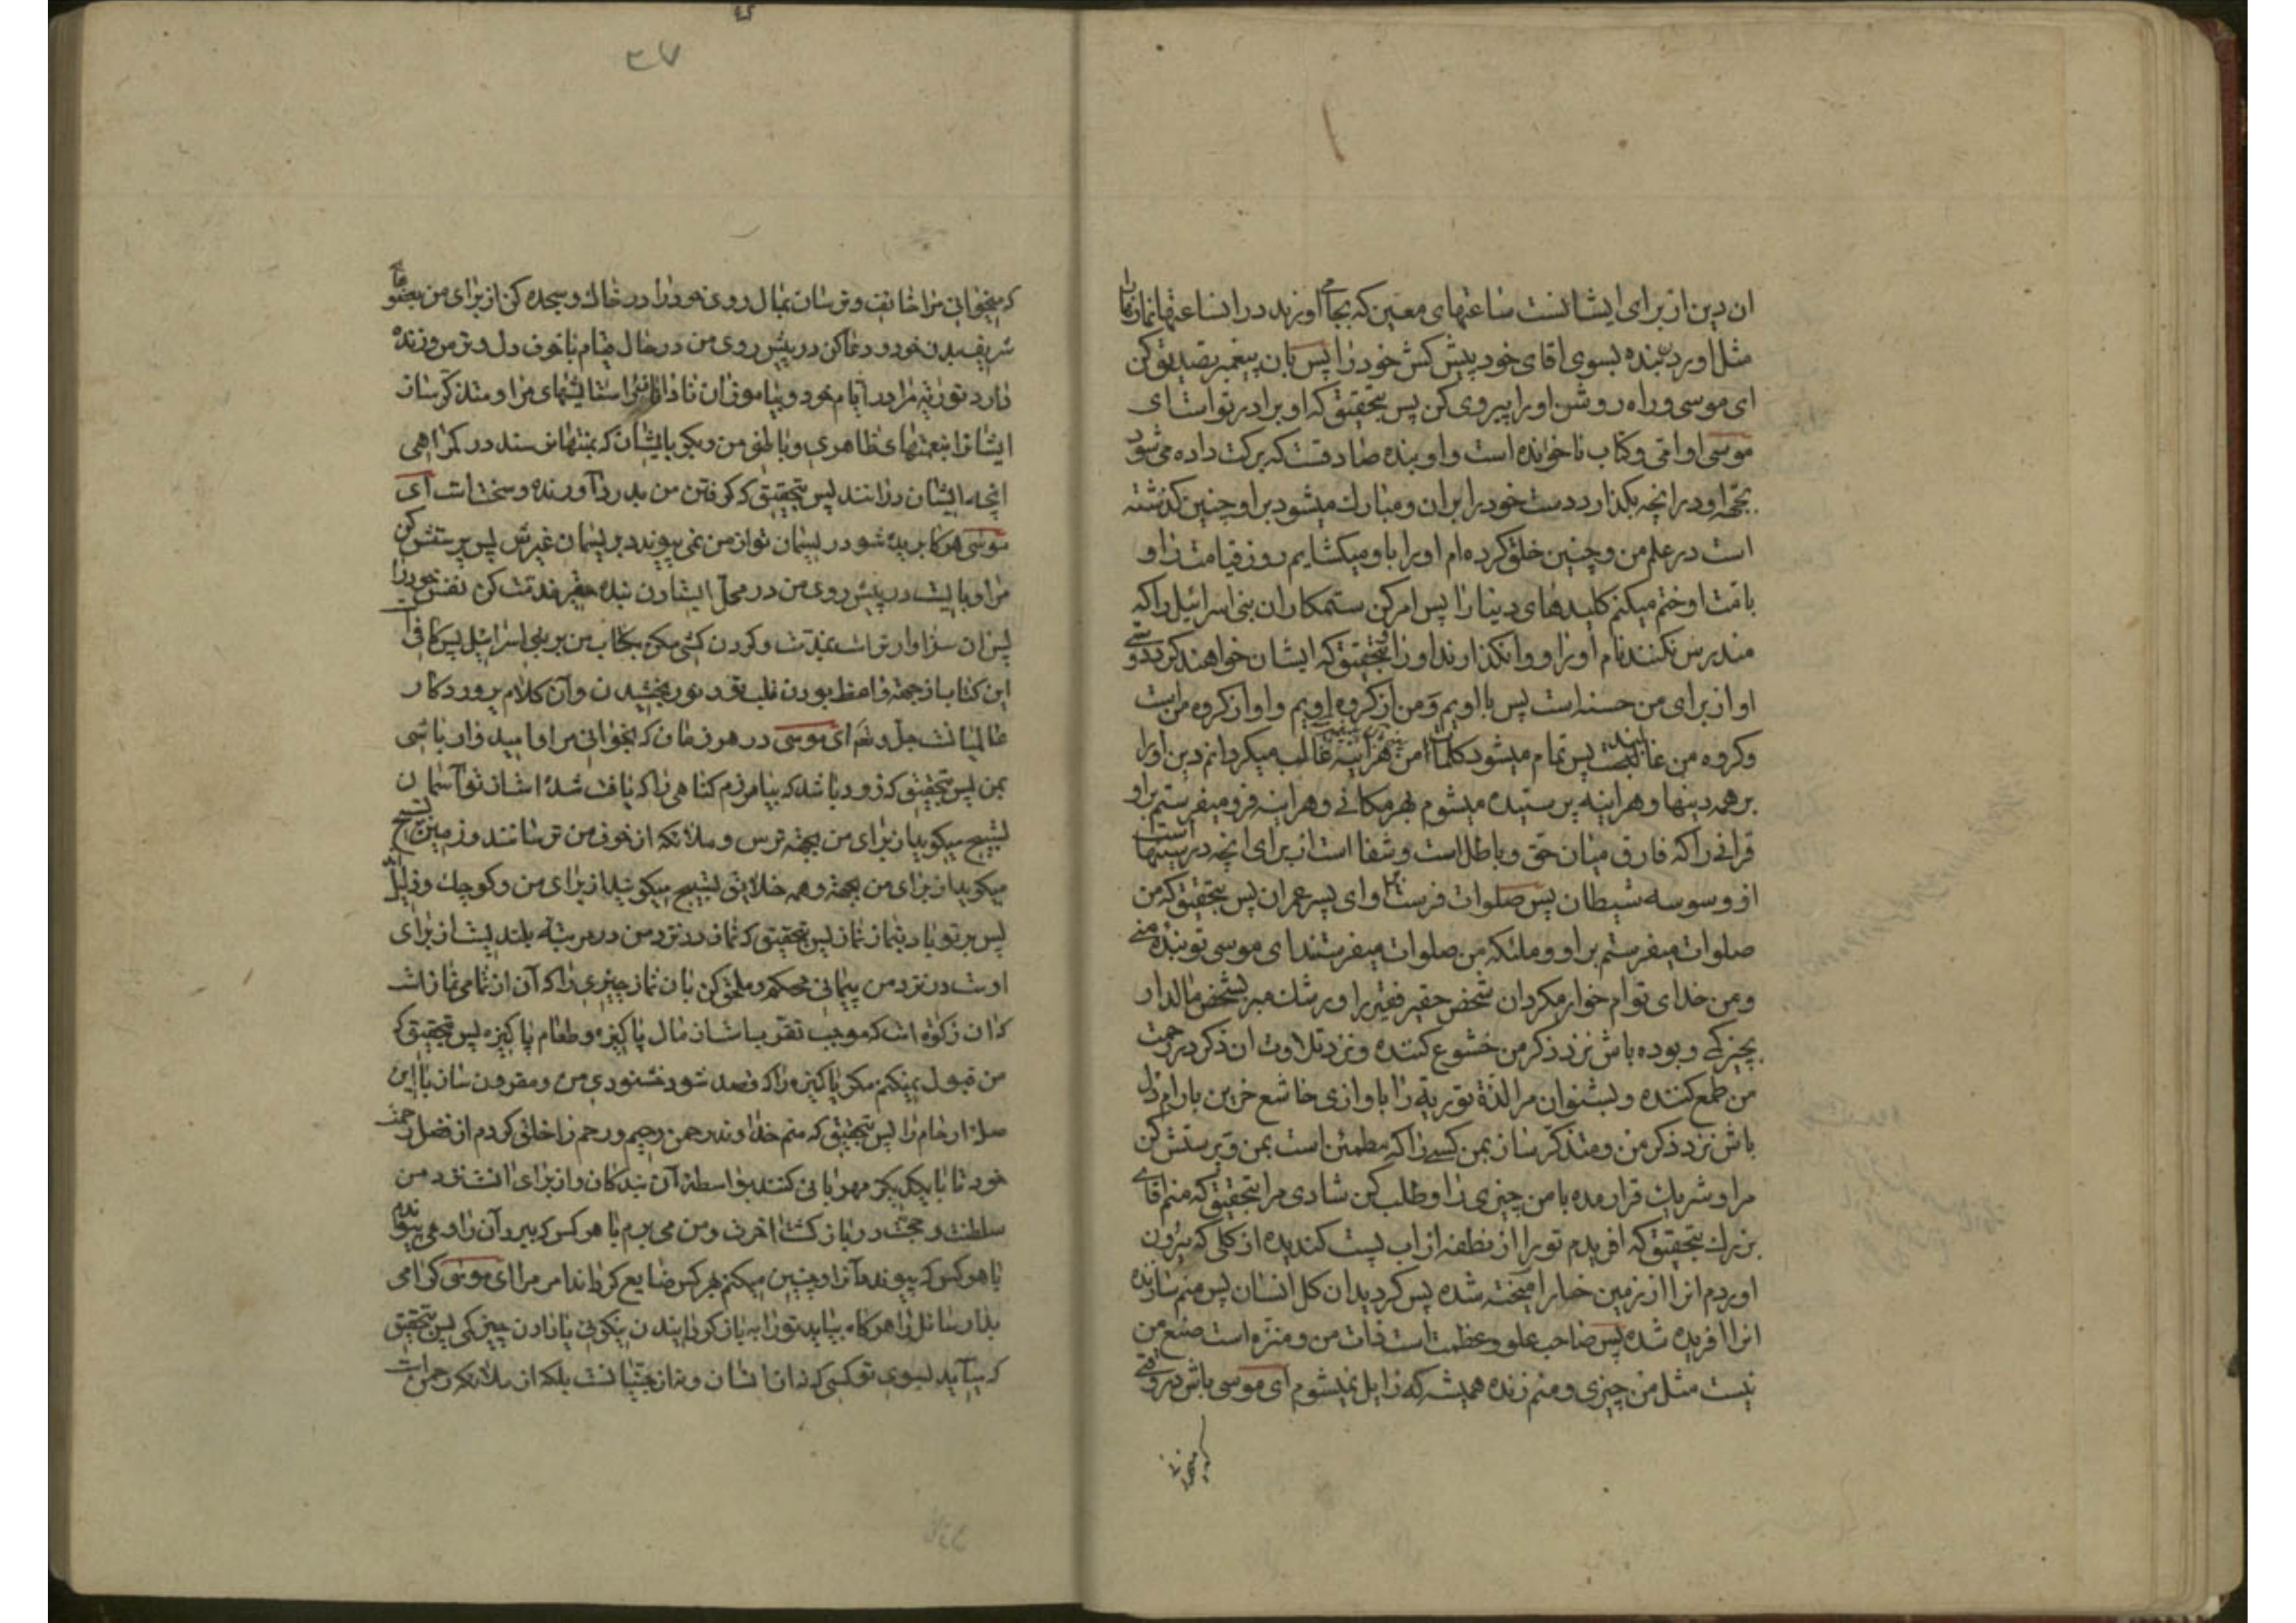 ان دین از برای ایشانست ساعتهای معین که بجای اورند در انساعتها نمازها
مثل اوردن بنده بسوی اقای خود پیش کش خود را پس بان پیغمبر تصدیق کن
ای موسی و راه روشن او را پیروی کن پس بتحقیق که او برادر تواست ای
موسی او امی و کتاب ناخوانده است و او بنده صادقست که برکت داده می شود
بجهة او در انچه بکذارد دست خود را بران و مبارک میشود بر او چنین کذشته
است در علم من و چنین خلق کرده ام او را باو میکشایم روز قیامت را و
بامت او ختم میکنم کلیدهای دینا را پس امر کن ستمکاران بنی اسرائیل را که
مندرس نکنند نام او را و وانکذارند او را بتحقیق که ایشان خواهند کرد و دوستی
او از برای من حسنه است پس با اویم و من از کروه اویم و او از کروه من است
و کروه من غالبند پس تمام میشود کلمات من هراینه غالب میکردانم دین او را
بر همه دینها و هراینه پرستیده میشوم بهر مکانی و هراینه فرو میفرستم بر او
قرانی را که فارق میان حق و باطل است و شفا است از برای انچه در سینها است
از وسوسه شیطان پس صلوات فرست بر او ای پسر عمران پس بتحقیق که من
صلوات میفرستم بر او و ملئکه من صلوات میفرستند ای موسی تو بنده منی
و من خدای توام خوار مکردان شخص حقیر فقیر را و رشک مبر بشخص مالدار
بچیز کمی و بوده باش نزد ذکر من خشوع کننده و نزد تلاوت ان ذکر در رحمت
من طمع کننده و بشنوان مرا لذة توریة را باواز خاشع حزین بارام دل
باش نزد ذکر من و متذکر ساز بمن کسی را که مطمئن است بمن و پرستش کن
مرا و شریک قرار مده با من چیزی را و طلب کن شادی مرا بتحقیق که منم اقای
بزرک بتحقیق که افریدم تو را از نطفه از اب پست کندیده از کلی که بیرون
اوردم انرا از زمین خوار امیخته شده پس کردید ان کل انسان پس منم سازنده
انرا افریده شده پس صاحب علو و عظمت است ذات من و منزه است صنع من
نیست مثل من چیزی و منم زنده همیشه که زایل نمیشوم ای موسی باش در وقتی
که میخوانی
که میخوانی مرا خائف و ترسان بمال روی خود را در خاک و سجده کن از برای من بعضوهای
شریف بدن خود و دعا کن در پیش روی من در حال قیام با خوف دل و ترس و زنده
دار در توریة مرا در ایام خود و بیاموزان نادانان را ستایشهای مرا و متذکر ساز
ایشانرا نعمتهای ظاهری و باطنی من و بکو بایشان که بمنتها نرسند در کمراهی
انچه ایشان درانند پس بتحقیق که کرفتن من بدرد آورنده و سخت است ای
موسی هرکاه بریده شود ریسمان تو از من نمی پیوندد بریسمان غیرش پس پرستش کن
مرا و بایست در پیش روی من در محل ایستادن بنده حقیر مذمت کن نفس خود را
پس ان سزاوارتر است بمذمت و کردن کشی مکن بکتاب من بر بنی اسرائیل پس کافی است
این کتاب از جهة واعظ بودن قلب تو و نور بخشیدن و آن کلام پروردکار
عالمیانست جل و عز ای موسی در هر زمان که بخوانی مرا و امیدوار باشی
بمن پس بتحقیق که زود باشد که بیامرزم کناهی را که یافت شده است از تو آسمان
تسبیح میکوید از برای من بجهة ترس و ملائکه از خوف من ترسانند و زمین تسبیح
میکوید از برای من بجهة و همه خلایق تسبیح میکویند از برای من و کوچک و ذلیل اند
پس بر تو باد بنماز نماز پس بتحقیق که نماز در نزد من در مرتبه بلندیست از برای
اوست در نزد من پیمانی محکم و ملحق کن بان نماز چیزی را که آن از تمامی نماز است
که ان زکوة است که موجب تقرب است از مال پاکیزه و طعام پاکیزه پس بتحقیق که
من قبول نمیکنم مکر پاکیزه را که قصد شود خشنودی من و مقرون ساز با این
صله ارحام را پس بتحقیق که منم خداوند رحمن و رحیم و رحم را خلق کردم از فضل رحمت
خود تا با یکدیکر مهربانی کنند بواسطه آن بندکان و از برای انست نزد من
سلطنت و حجت در بازکشت اخرت و من می برم با هر کس که ببرد آن را و می پیوندم
با هر کس که پیوندد آنرا و چنین میکنم بهر کس ضایع کرداند امر مرا ای موسی کرامی
بدار سائل را هرکاه بیاید تو را به بازکردانیدن نیکوئی یا دادن چیز کمی پس بتحقیق
که میآید بسوی تو کسی که نه از انسان و نه از جنیانست بلکه از ملائکه رحمن است